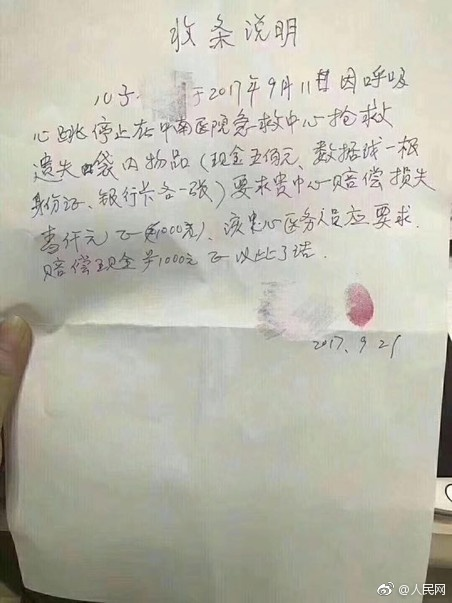 收条说明
儿子 于2017年9月11日因呼吸
心跳停止在中南医院急救中心抢救
遗失 袋内物品（现金五佰元、数据线一根
身份证、银行卡各一张）要求贵中心赔偿损失
壹仟元正（1000元）、该中心医务人员应要求
赔偿现金1000元正以此了结.
2017.9.21
@人民网